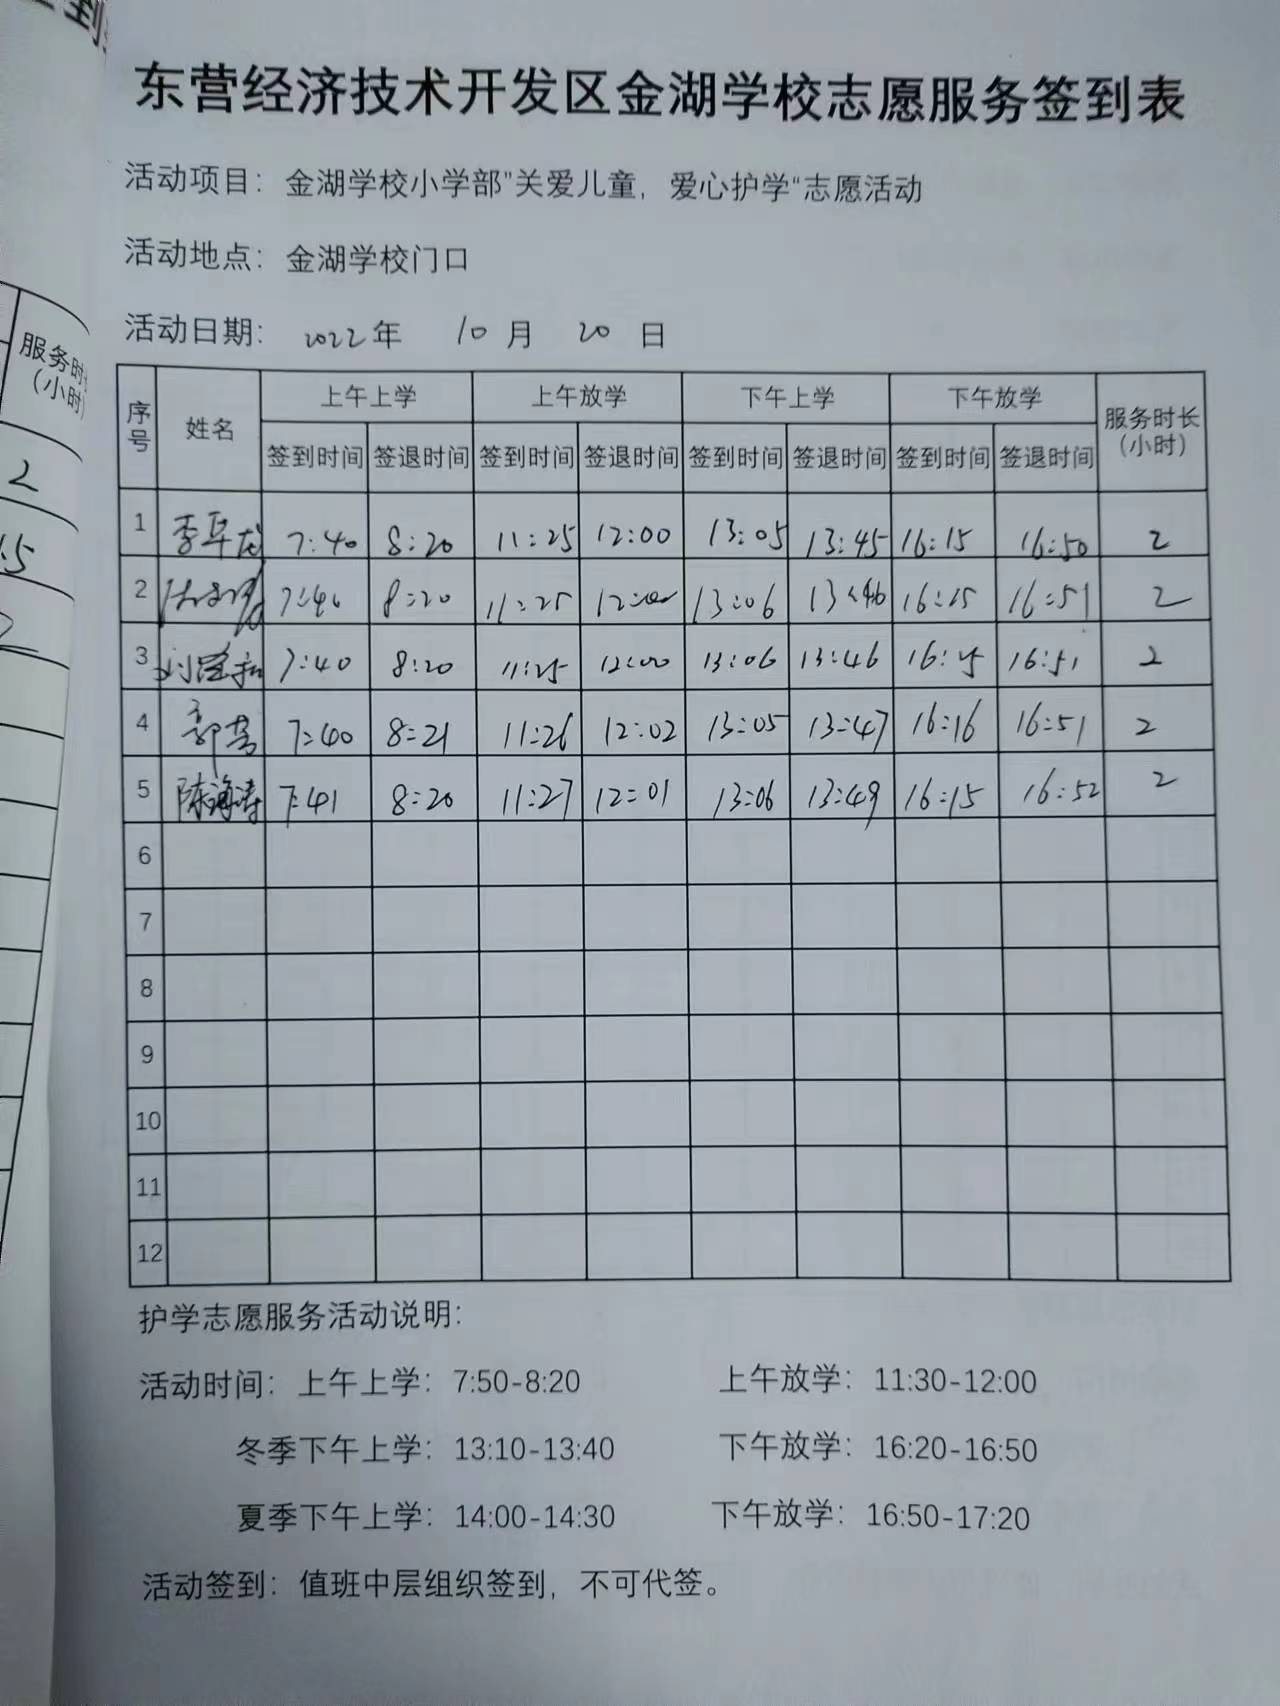 东营经济技术开发区金湖学校志愿服务签到表
活动项目：金湖学校小学部"关爱儿童，爱心护学“志愿活动
活动地点：金湖学校门口
活动日期：2022年 10月 20日
序号 姓名 上午上学 上午放学 下午上学 下午放学 服务时长（小时）
签到时间 签退时间 签到时间 签退时间 签到时间 签退时间 签到时间 签退时间
1 7:40 8:20 11:25 12:00 13:05 13:45 16:15 16:50 2
2 7:40 8:20 11:25 12:00 13:06 13:46 16:15 16:51 2
3 7:40 8:20 11:25 12:00 13:06 13:46 16:15 16:51 2
4 郭营 7:40 8:21 11:26 12:02 13:05 13:47 16:16 16:51 2
5 陈海涛 7:41 8:20 11:27 12:01 13:06 13:49 16:15 16:52 2
6
7
8
9
10
11
12
护学志愿服务活动说明：
活动时间：上午上学：7:50-8:20 上午放学：11:30-12:00
冬季下午上学：13:10-13:40 下午放学：16:20-16:50
夏季下午上学：14:00-14:30 下午放学：16:50-17:20
活动签到：值班中层组织签到，不可代签。
服务时
（小时
2
.5
2